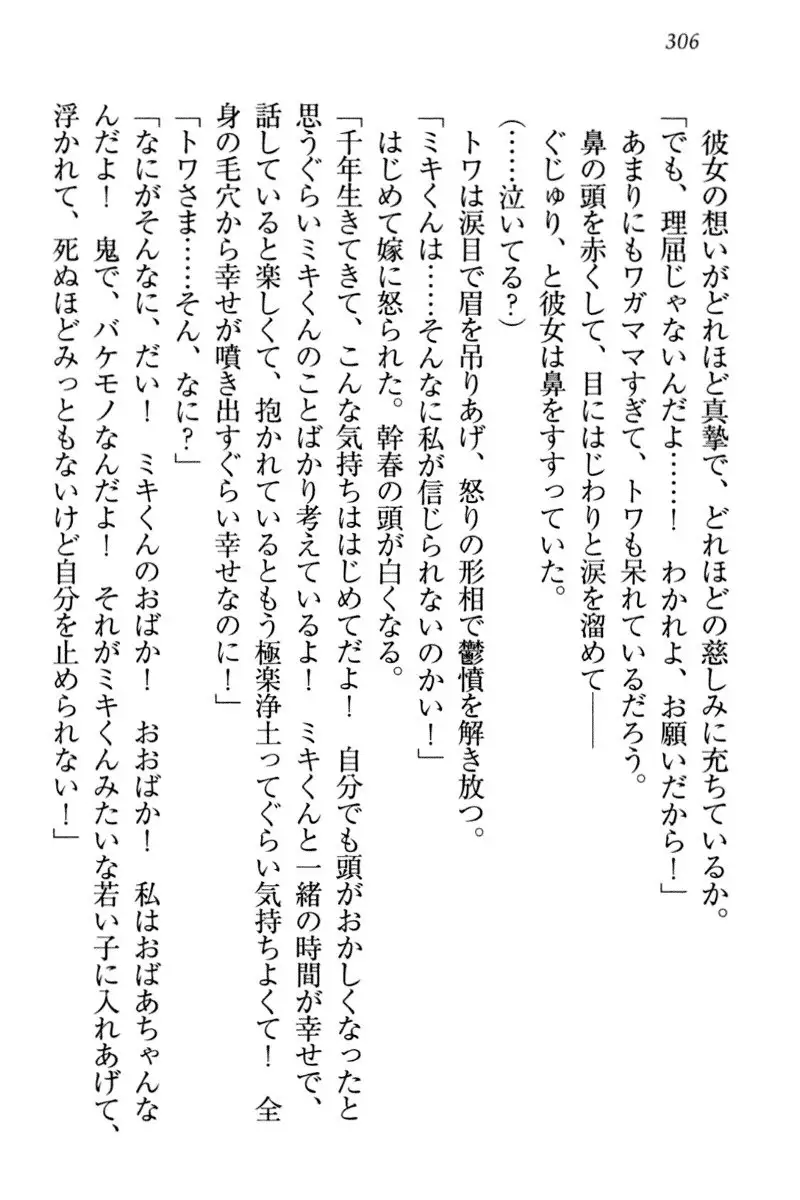 306
彼女の想いがどれほど真摯で、どれほどの慈しみに充ちているか。
「でも、理屈じゃないんだよ……！　わかれよ、お願いだから！」
あまりにもワガママすぎて、トワも呆れているだろう。
鼻の頭を赤くして、目にはじわりと涙を溜めて――
ぐじゅり、と彼女は鼻をすすっていた。
(……泣いてる？)
トワは涙目で眉を吊りあげ、怒りの形相で鬱憤を解き放つ。
「ミキくんは……そんなに私が信じられないのかい！」
はじめて嫁に怒られた。幹春の頭が白くなる。
「千年生きてきて、こんな気持ちははじめてだよ！　自分でも頭がおかしくなったと
思うぐらいミキくんのことばかり考えているよ！　ミキくんと一緒の時間が幸せで、
話していると楽しくて、抱かれているともう極楽浄土ってぐらい気持ちよくて！　全
身の毛穴から幸せが噴き出すぐらい幸せなのに！」
「トワさま……そん、なに？」
「なにがそんなに、だい！　ミキくんのおばか！　おおばか！　私はおばあちゃんな
んだよ！　鬼で、バケモノなんだよ！　それがミキくんみたいな若い子に入れあげて、
浮かれて、死ぬほどみっともないけど自分を止められない！」